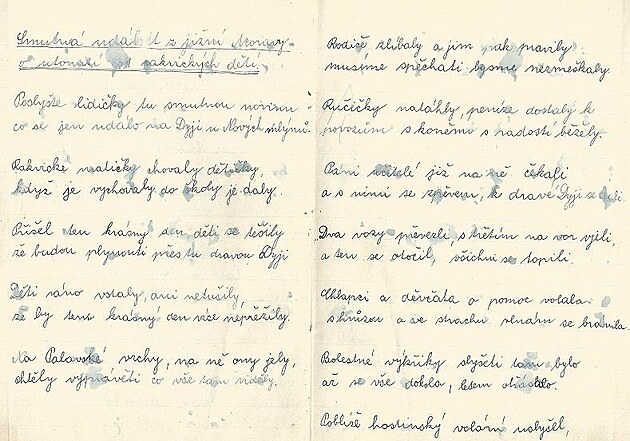 Smutná událost z jižní Moravy
o utonutí rakvických dětí.
Poslyšte lidičky tu smutnou novinu
co se jen udalo na Dyji u Nových mlýnů.
Rakvické matičky chovaly dětičky,
když je vychovaly do školy je daly.
Přišel ten krásný den děti se těšily
že budou plynouti přes tu dravou Dyji
Děti ráno vstaly, ani netušily,
že by tento krásný den více nepřežily.
Na Palavské vrchy, na ně ony jely,
chtěly vyprávěti co vše tam viděly.
Rodiče zlíbaly a jim pak pravily
musíme spěchati bysme nezmeškaly.
Ručičky natáhly, peníze dostaly k
povozům s koněmi s radostí běžely.
Páni učitelé již na ně čekali
a s nimi se zpěvem, k dravé Dyji
Dva vozy převezli, s třetím na vor vjeli,
a ten se otočil, všichni se topili.
Chlapci a děvčata o pomoc volala
s hrůzou a ve strachu vlnám se bránila.
Bolestné výkřiky slyšeti tam bylo
až se vše dokola, lesem otřáslo.
Poblíže hostinský volání uslyšel,